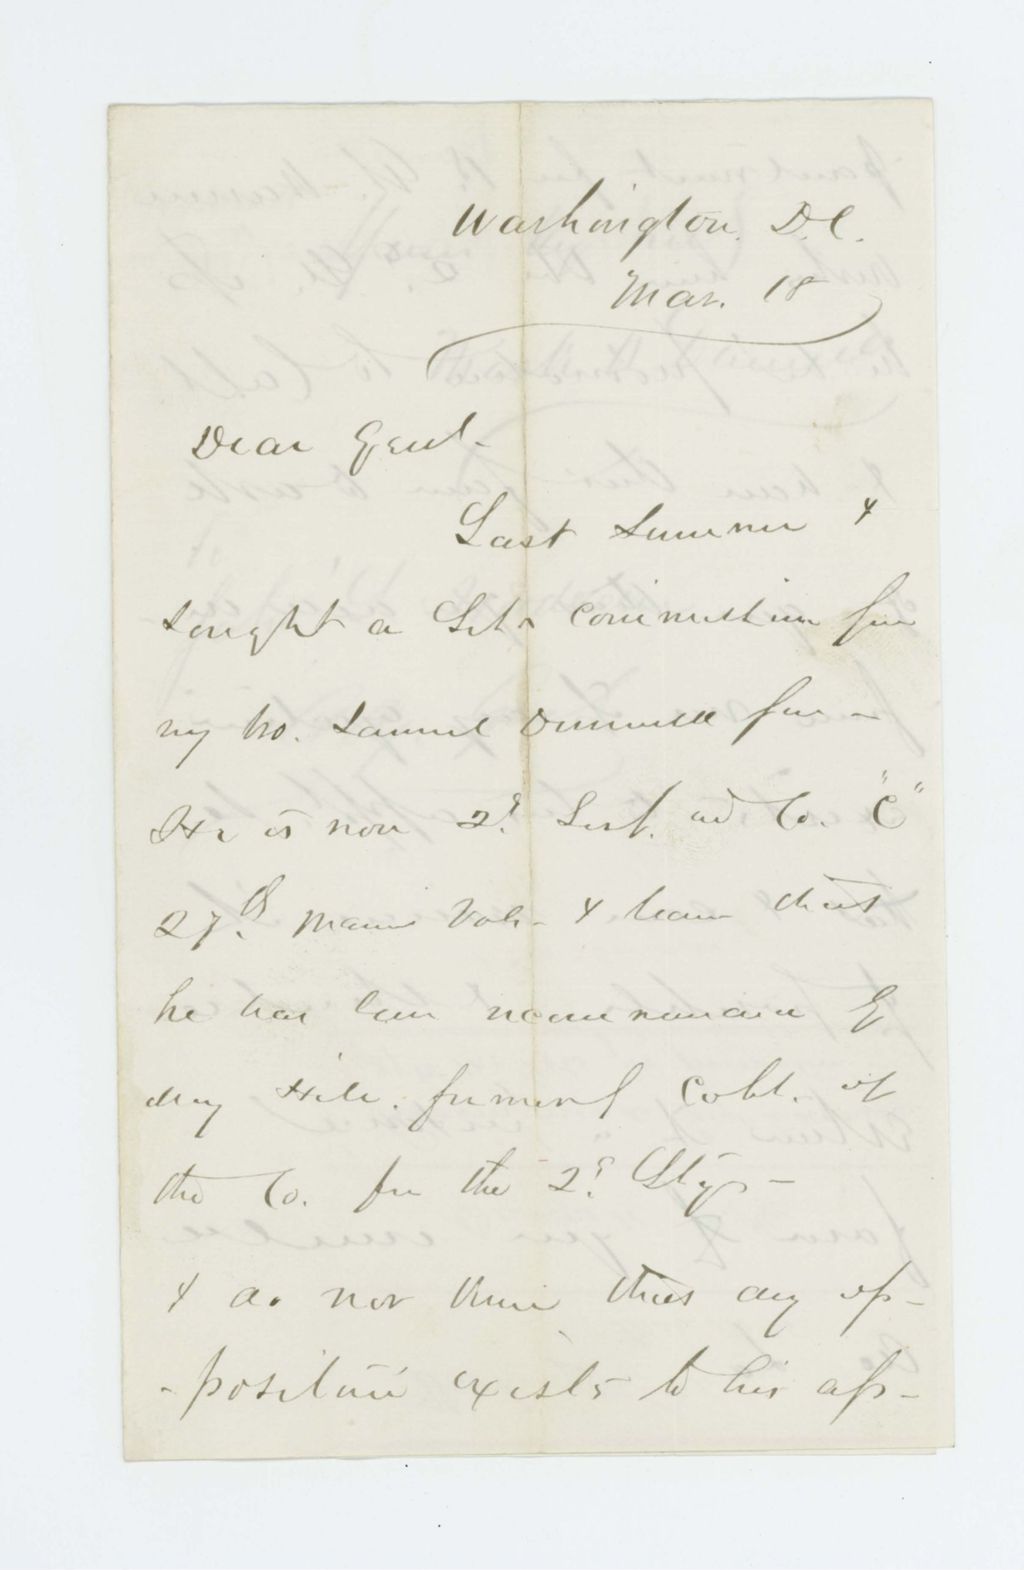 Washington. D.C.
Mar. 18
Dear Genl-
Last Summer I
sought a Lts commission for
my bro. Samuel
He is now 2d. Sert. in Co. "C"
27th. Maine Vols- I learn that
he has been recommended by
Maj Hill. formerly Capt. of
the Co. for the 2d. Ltcy-
I do not think that any op-
-position exists to his ap-